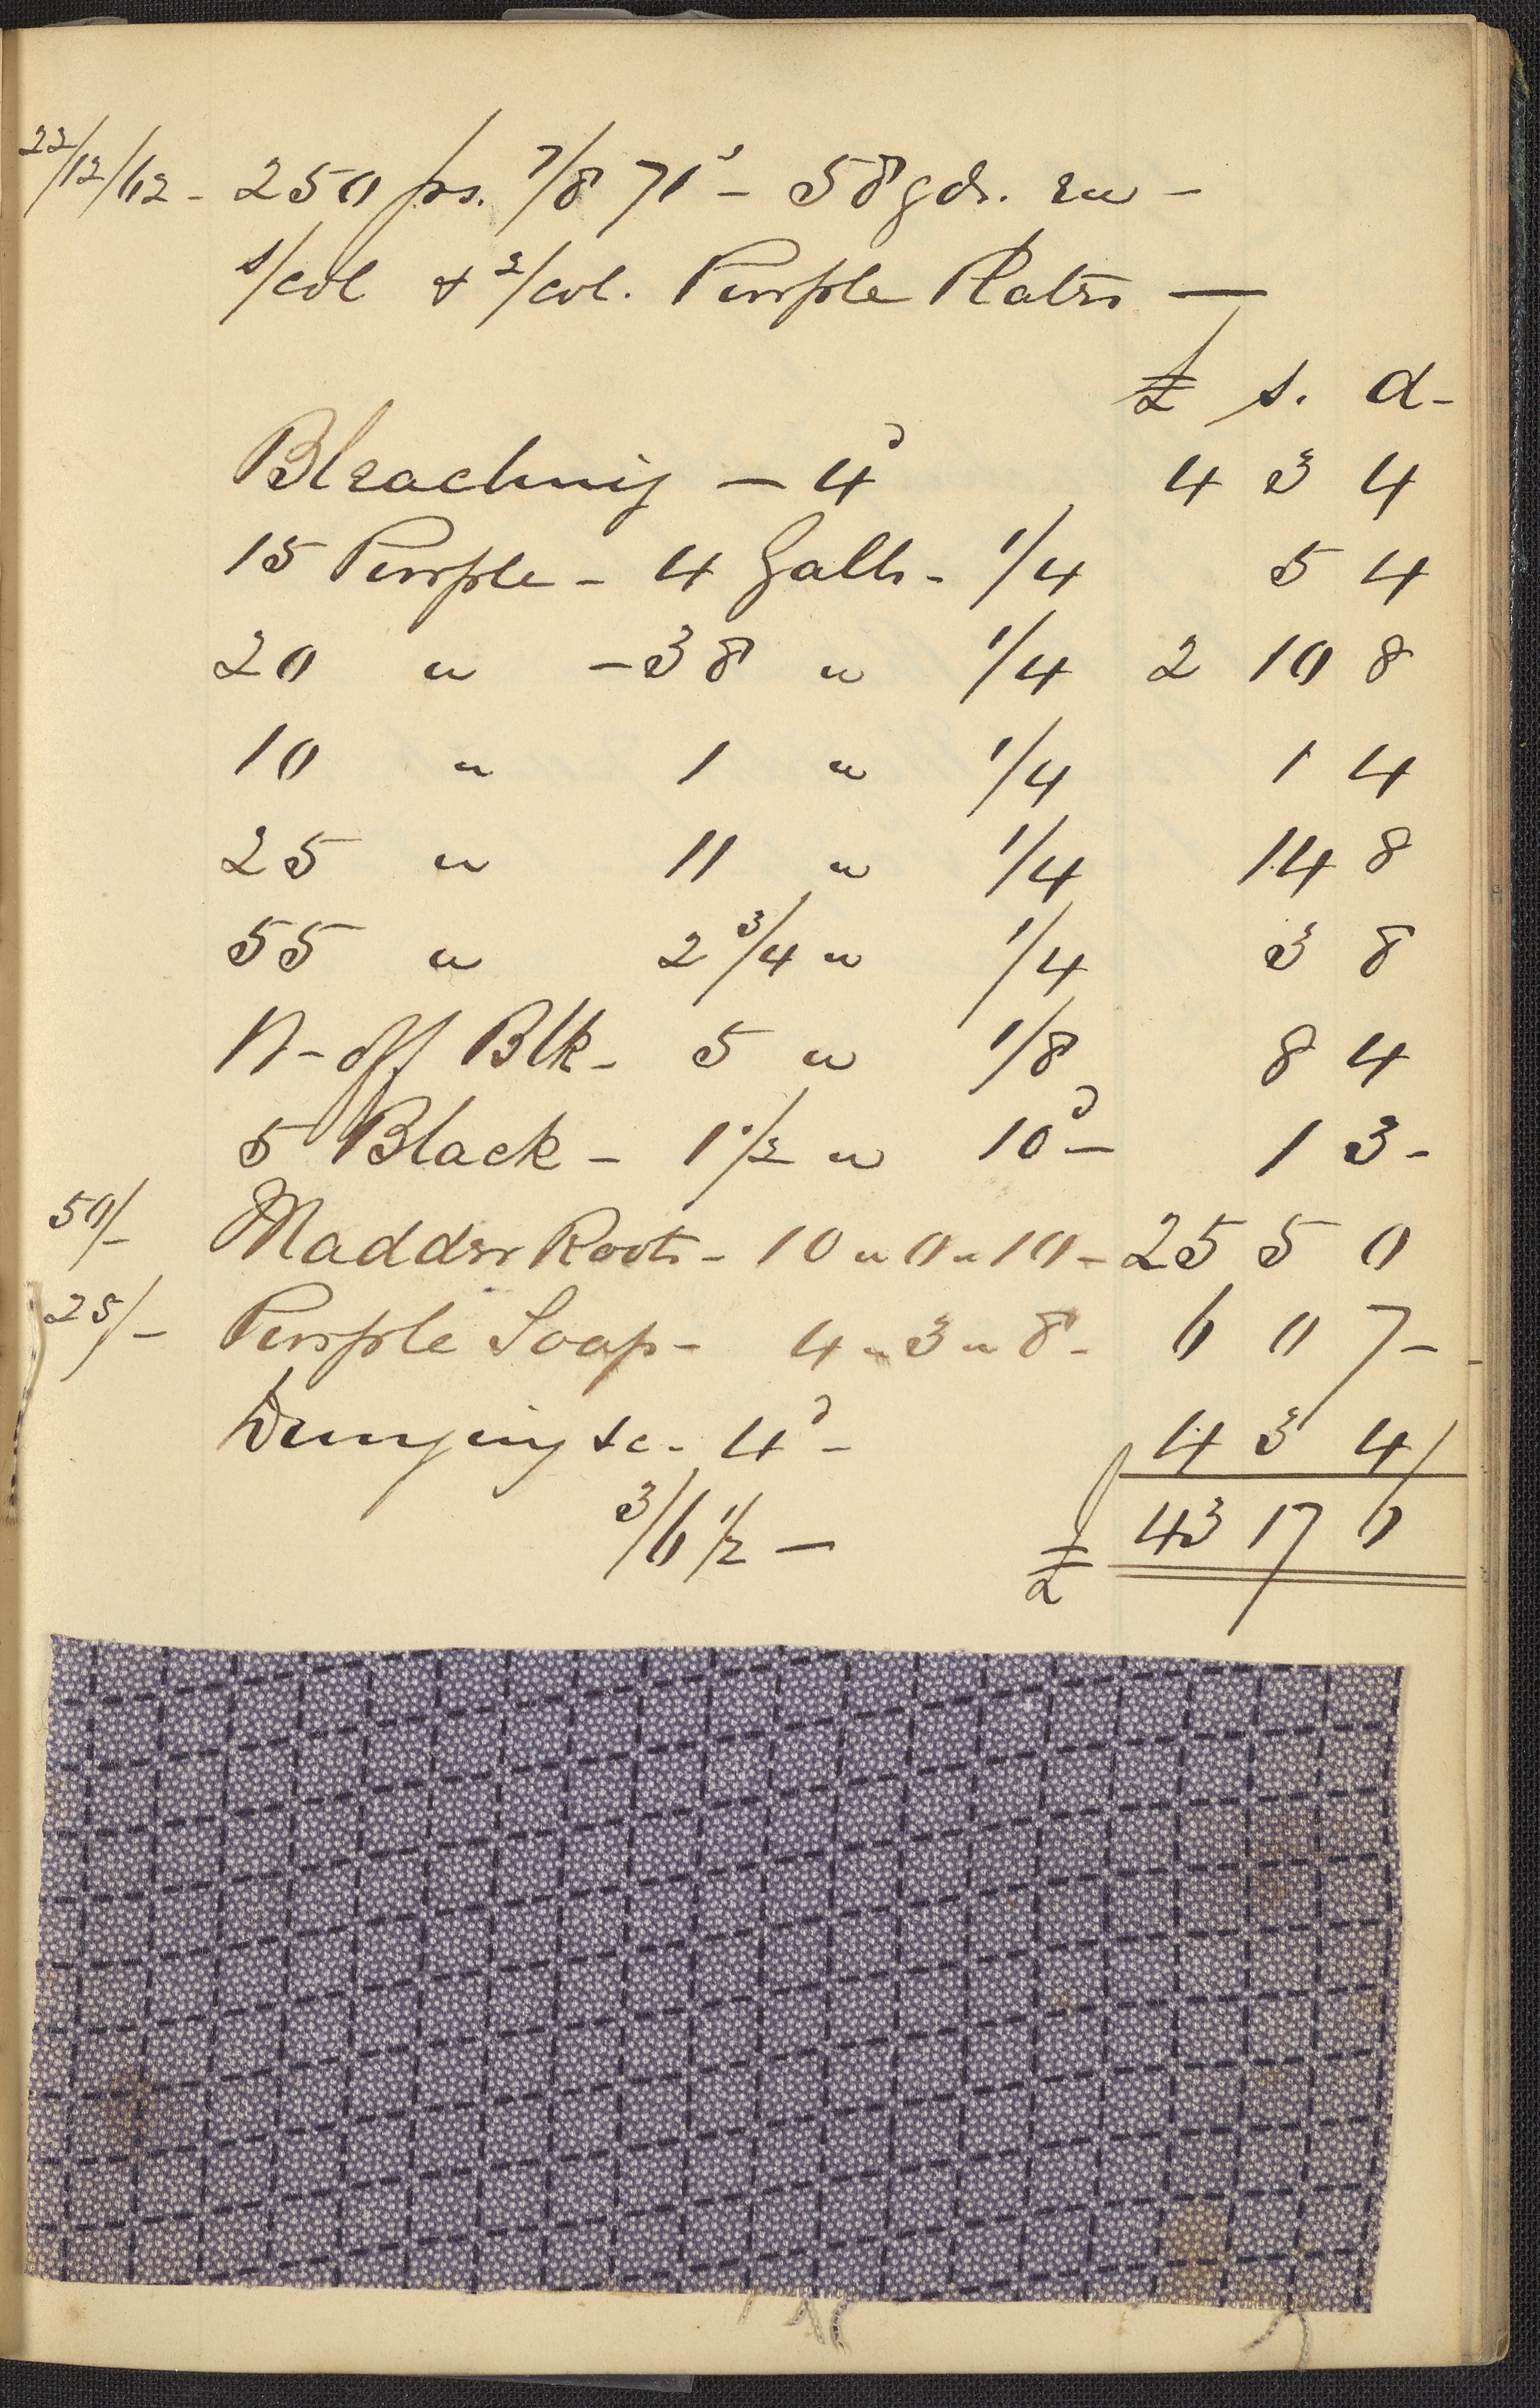 22/12/62 - 250 ps. 7/8 71s - 58 yds. in -
1/col & 2/col. Purple Plates —
£ s. d -
Bleaching — 4d 4 3 4
15 Purple - 4 Galls - 1/4 5 4
20 " - 38 " 1/4 2 10 8
10 " 1 " 1/4 1 4
25 " 11 " 1/4 14 8
55 " 2 3/4 " 1/4 3 8
N-off Blk - 5 " 1/8 8 4
5 Black - 1 1/2 " 10d - 1 3 -
50/- Madder Roots - 10 " 0 " 10 - 25 5 0
25/- Purple Soap - 4 " 3 " 8 - 6 0 7 -
Dunging &c - 4d - 4 3 4
3/6 1/2 — £ 43 17 6